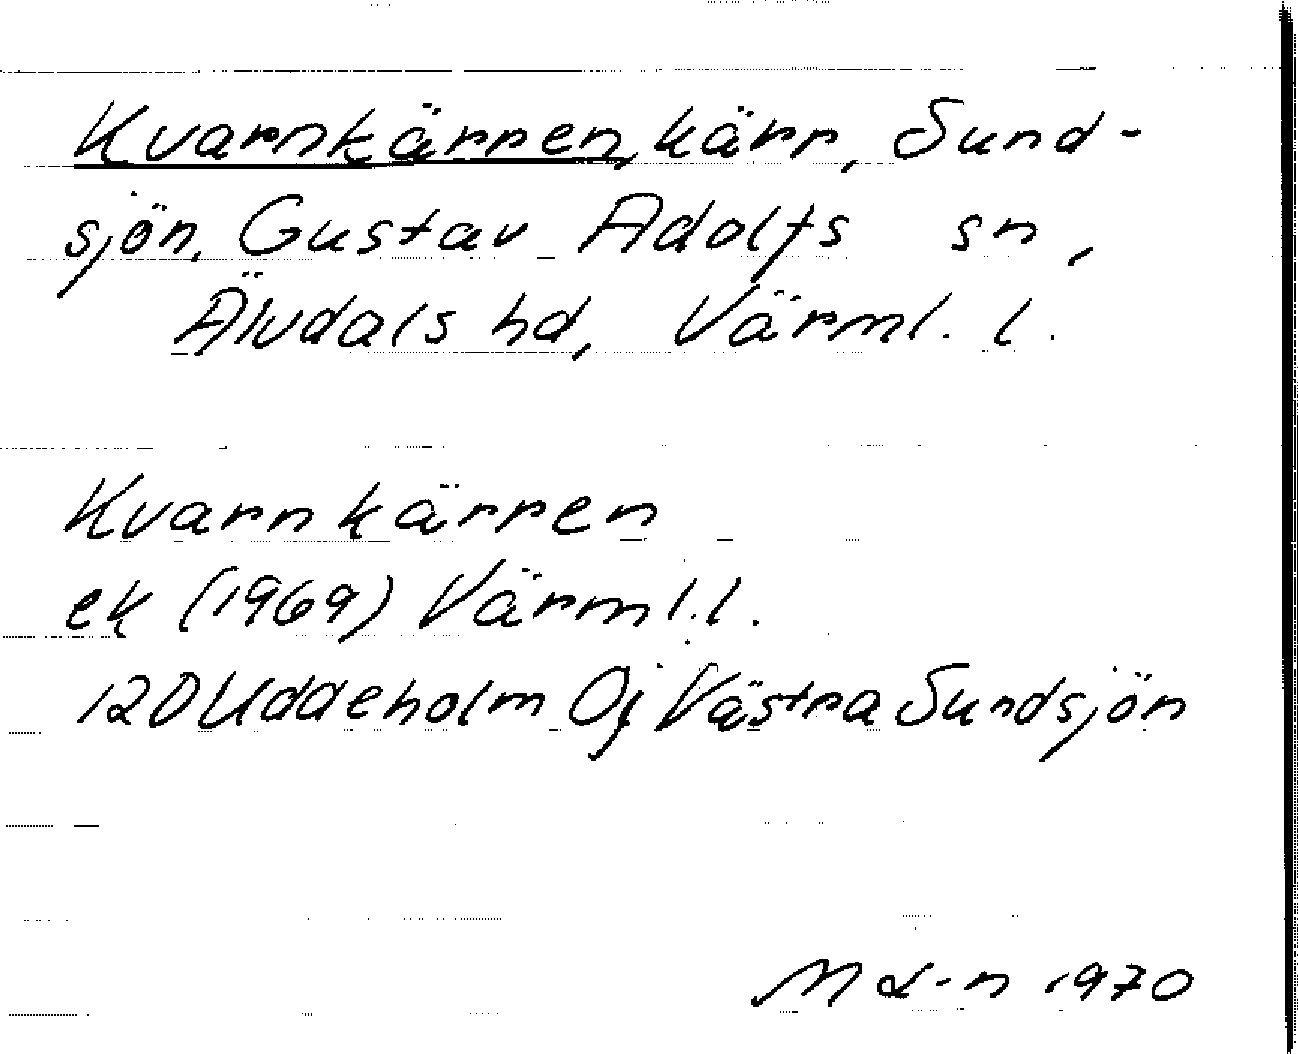 Kvarnkärren, kärr, Sund-
sjön, Gustav Adolfs sn,
Älvdals hd, Värml. l.
Kvarnkärren
ek (1969) Värml.l.
12D Uddeholm Oj Västra Sundsjön
M L-n 1970